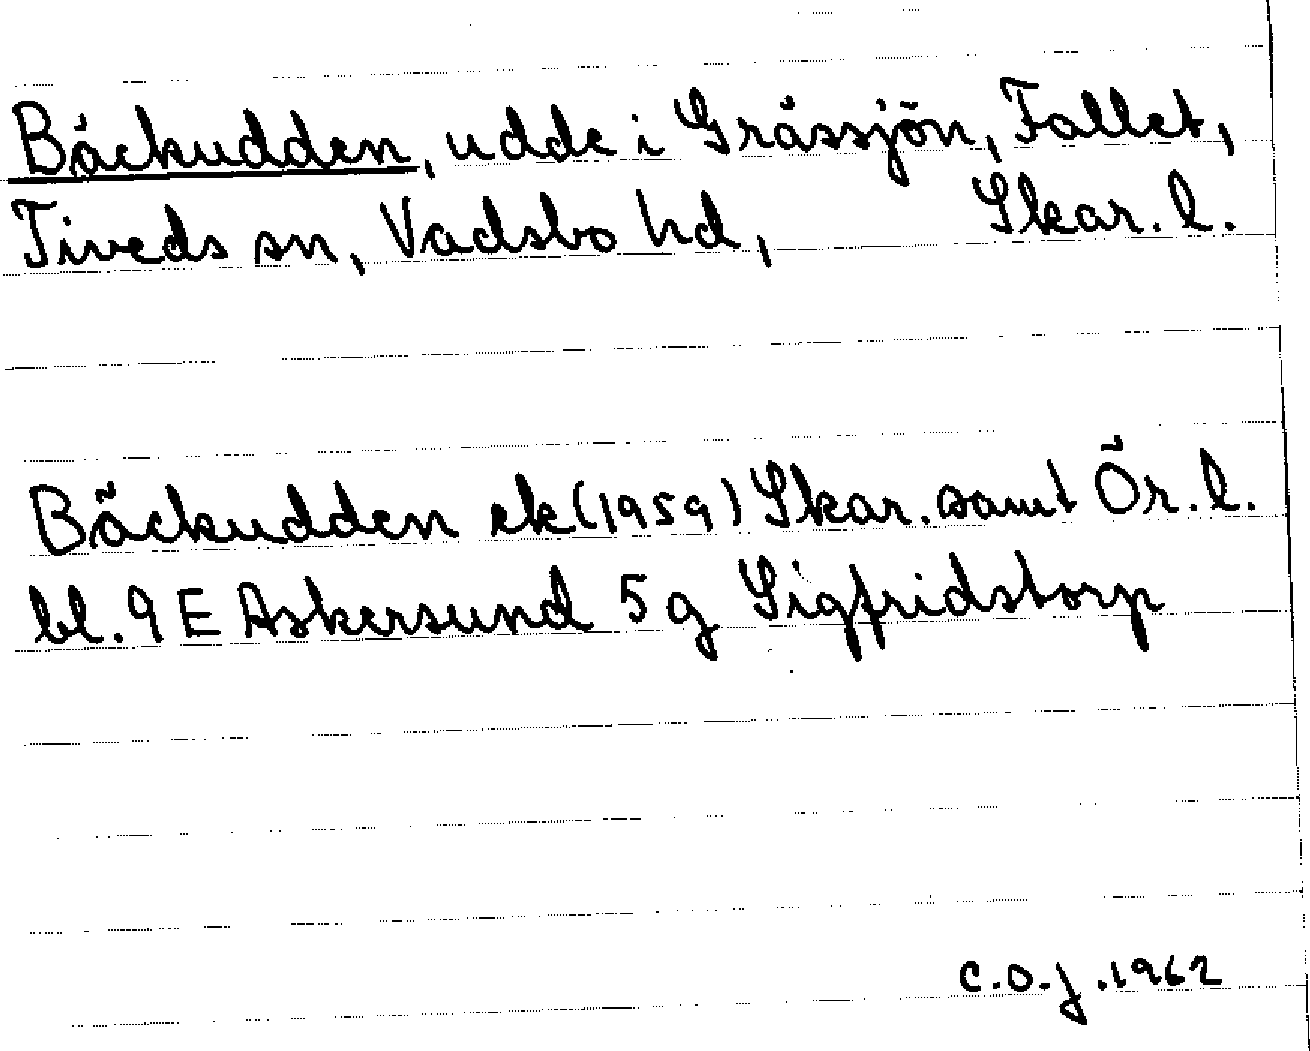 Bäckudden, udde i Grässjön, Fallet,
Tiveds sn, Vadsbo hd, Skar. l.
Bäckudden ek (1959) Skar. samt Ör. l.
bl. 9 E Askersund 5 g Sigfridstorp
C.O.J. 1962